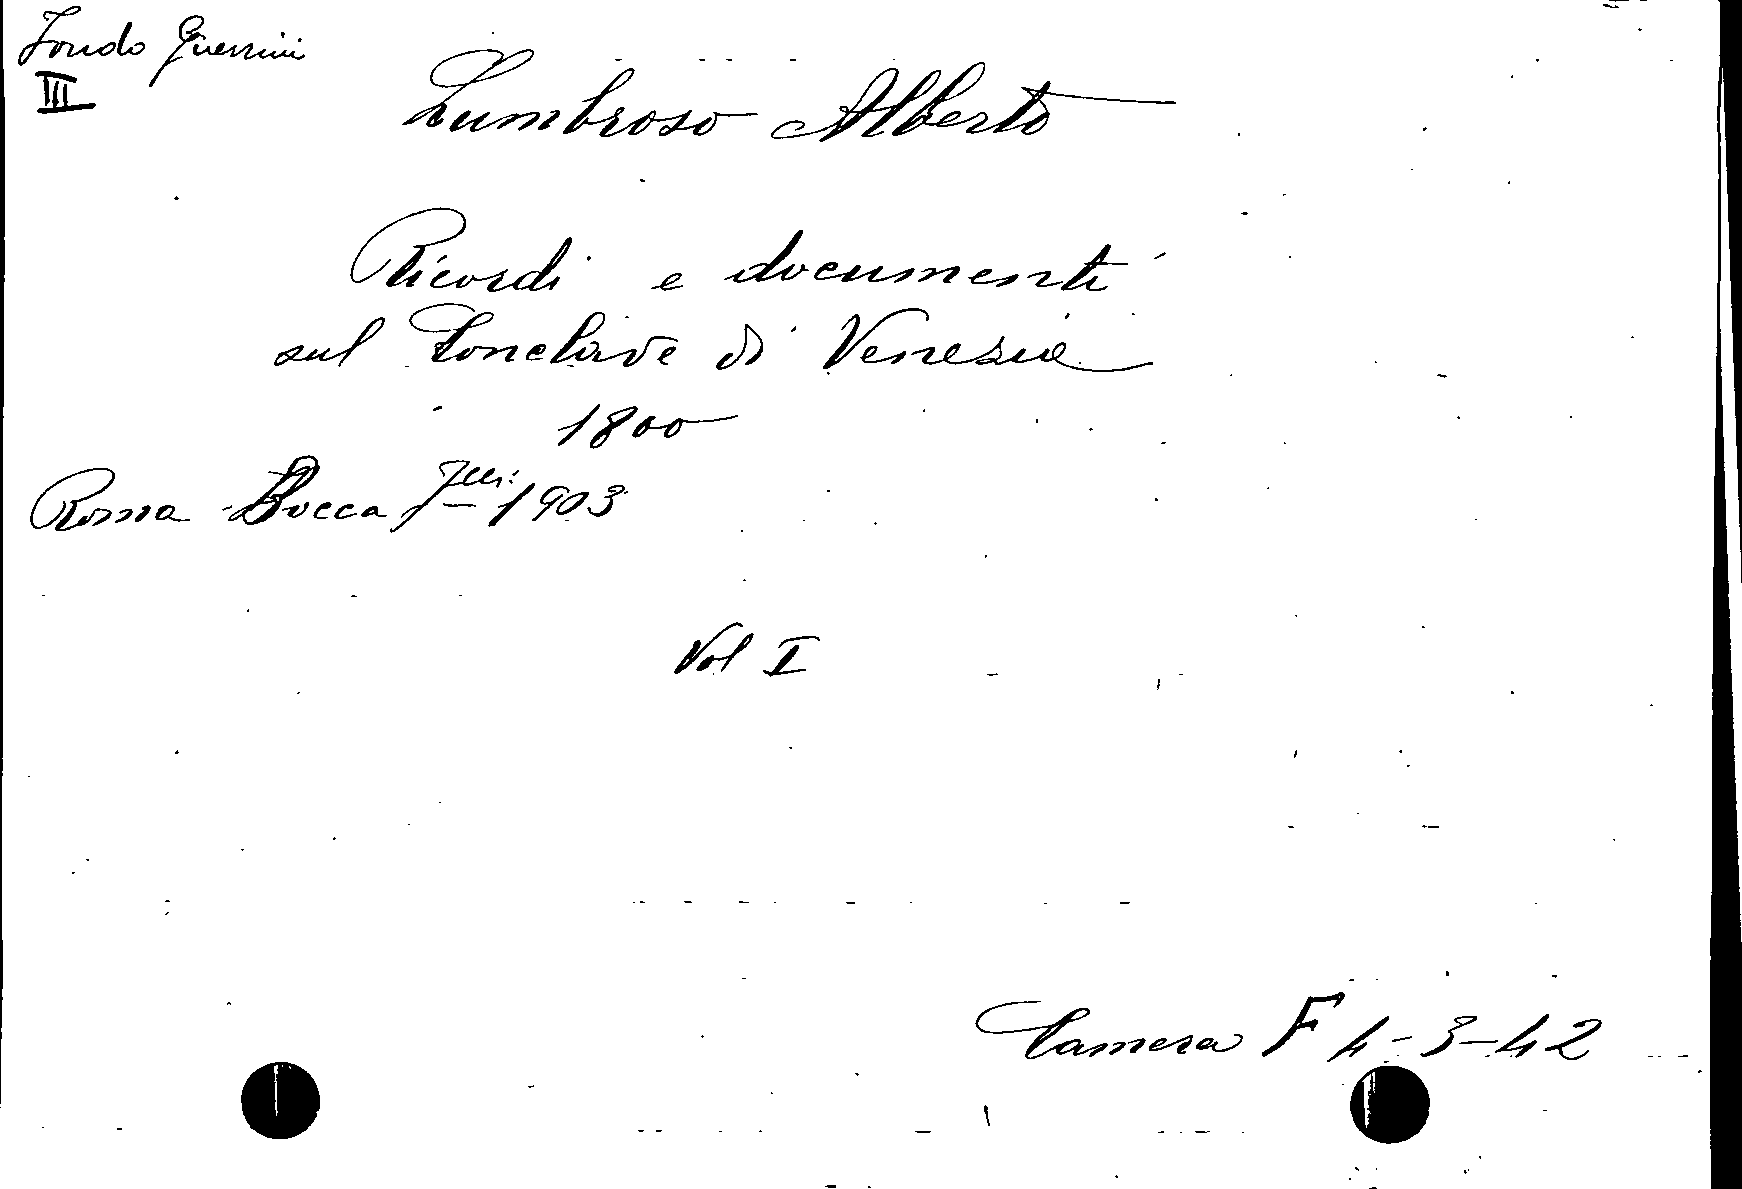 Fondo Guerrini
III
Lumbroso Alberto
Ricordi e documenti
sul Conclave di Venezia
1800
Roma Bocca Flli: 1903
Vol I
Camera F 4-3-42